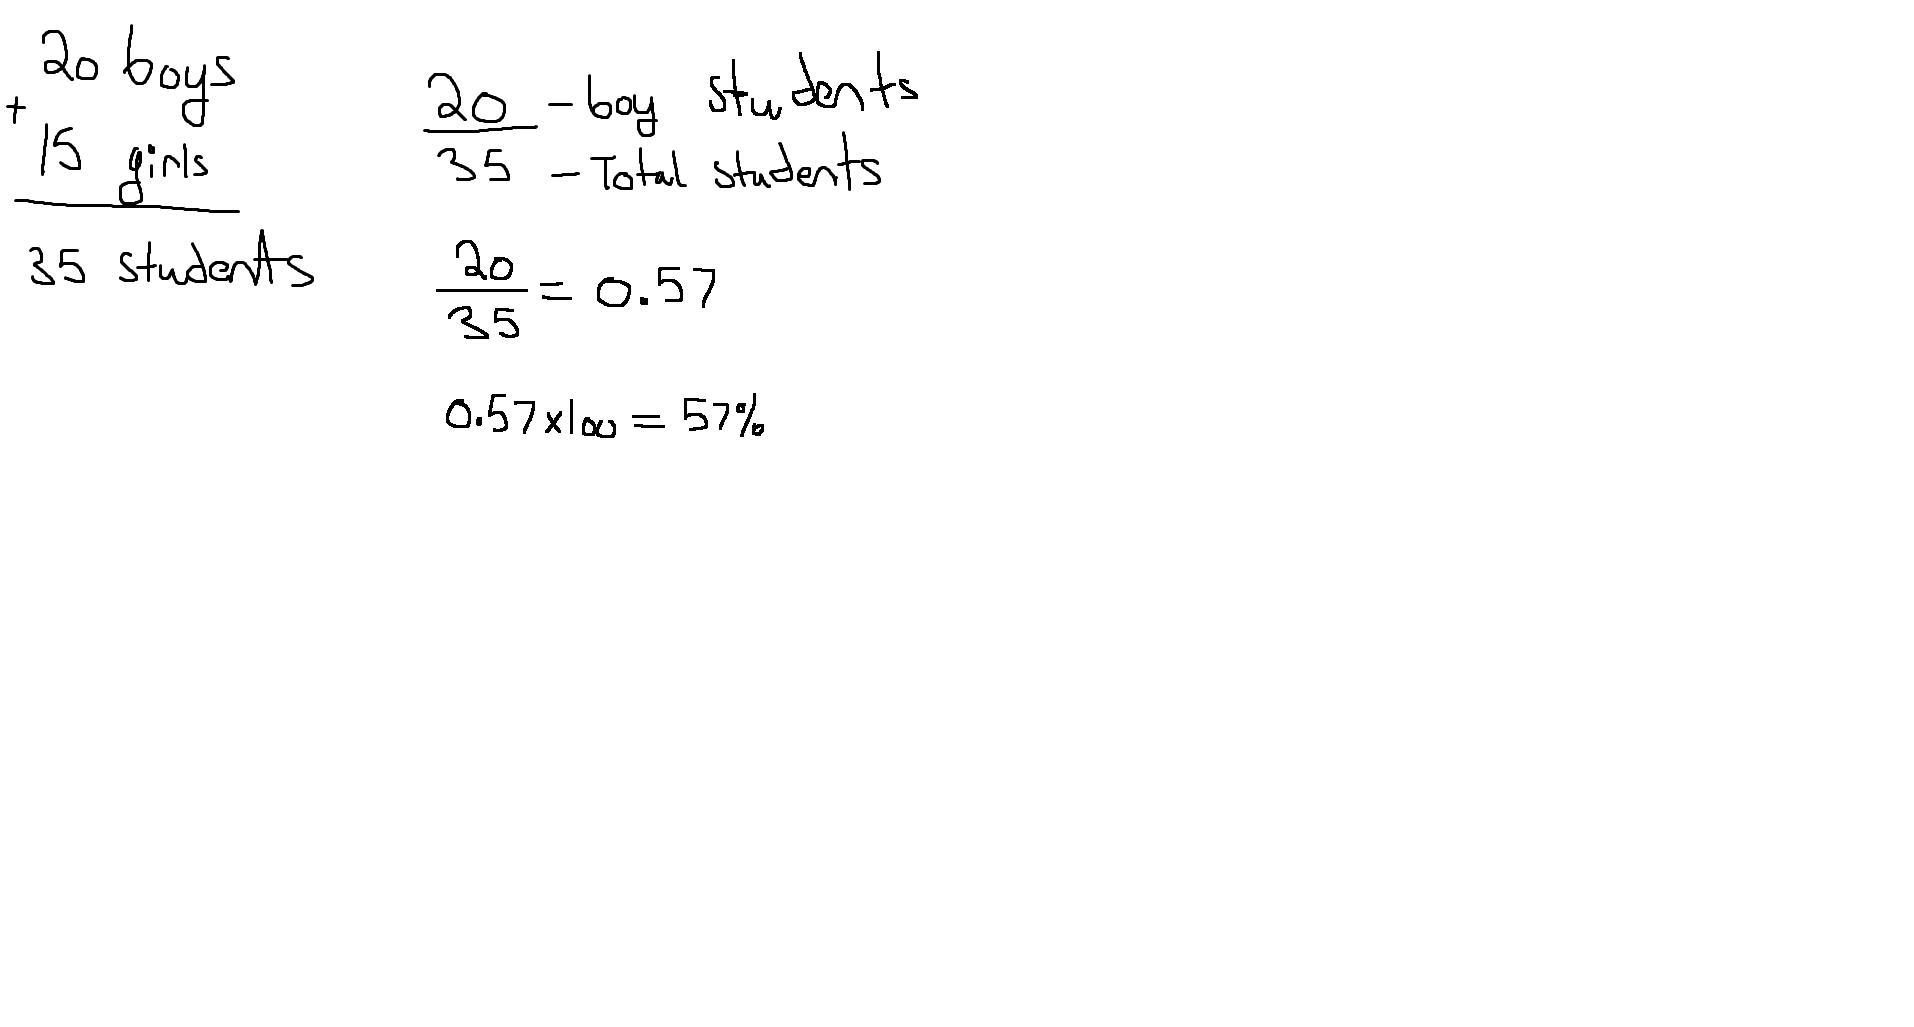 20 boys
+
15 girls
35 students
20 - boy students
35 - Total students
20
35 = 0.57
0.57 x 100 = 57%